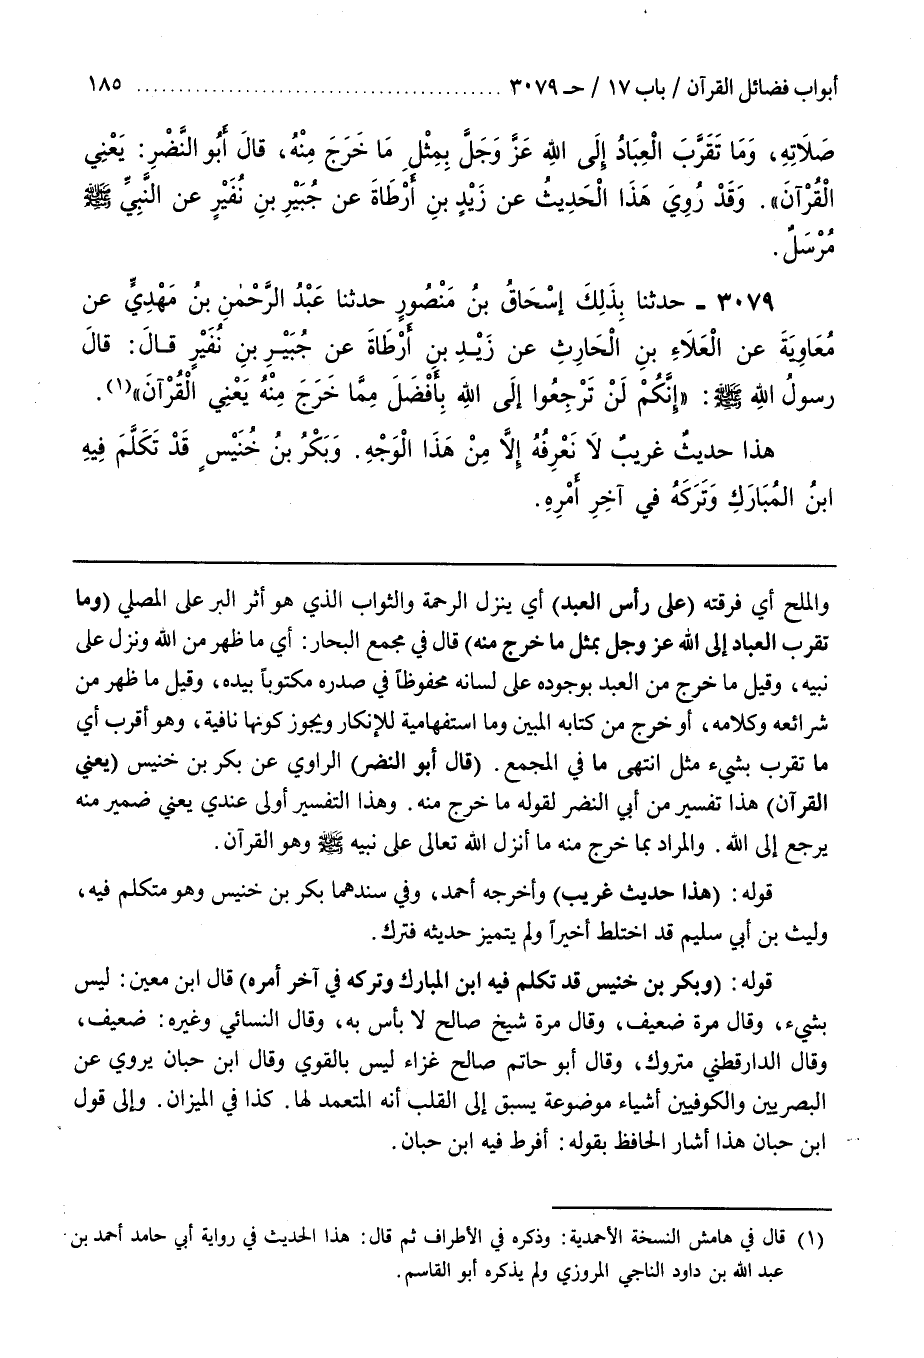 أبواب فضائل القرآن / باب ١٧ / حـ ٣٠٧٩ ........................................ ١٨٥
صَلَاتِهِ، وَمَا تَقَرَّبَ الْعِبَادُ إِلَى اللهِ عَزَّ وَجَلَّ بِمِثْلِ مَا خَرَجَ مِنْهُ، قالَ أَبُو النَّضْرِ: يَعْنِي
الْقُرْآنَ». وَقَدْ رُوِيَ هَذَا الْحَدِيثُ عن زَيْدِ بنِ أَرْطَاةَ عن جُبَيْرِ بنِ نُفَيْرٍ عن النَّبِيِّ ﷺ
مُرْسَلٌ.
٣٠٧٩ ـ حدثنا بِذَلِكَ إِسْحَاقُ بنُ مَنْصُورٍ حدثنا عَبْدُ الرَّحْمٰنِ بنُ مَهْدِيٍّ عن
مُعَاوِيَةَ عن الْعَلَاءِ بنِ الْحَارِثِ عن زَيْـدِ بنِ أَرْطَاةَ عن جُبَيْـرِ بنِ نُفَيْرٍ قـالَ: قالَ
رسولُ اللهِ ﷺ: «إِنَّكُمْ لَنْ تَرْجِعُوا إِلَى اللهِ بِأَفْضَلَ مِمَّا خَرَجَ مِنْهُ يَعْنِي الْقُرْآنَ»(١).
هذا حديثٌ غريبٌ لَا نَعْرِفُهُ إِلَّا مِنْ هَذَا الْوَجْهِ. وَبَكْرُ بنُ خُنَيْسٍ قَدْ تَكَلَّمَ فِيهِ
ابنُ المُبَارَكِ وَتَرَكَهُ في آخِرِ أَمْرِهِ.
والملح أي فرقته (على رأس العبد) أي ينزل الرحمة والثواب الذي هو أثر البر على المصلي (وما
تقرب العباد إلى الله عز وجل بمثل ما خرج منه) قال في مجمع البحار: أي ما ظهر من الله ونزل على
نبيه، وقيل ما خرج من العبد بوجوده على لسانه محفوظاً في صدره مكتوباً بيده، وقيل ما ظهر من
شرائعه وكلامه، أو خرج من كتابه المبين وما استفهامية للإنكار ويجوز كونها نافية، وهو أقرب أي
ما تقرب بشيء مثل انتهى ما في المجمع. (قال أبو النضر) الراوي عن بكر بن خنيس (يعني
القرآن) هذا تفسير من أبي النضر لقوله ما خرج منه. وهذا التفسير أولى عندي يعني ضمير منه
يرجع إلى الله. والمراد بما خرج منه ما أنزل الله تعالى على نبيه ﷺ وهو القرآن.
قوله: (هذا حديث غريب) وأخرجه أحمد، وفي سندهما بكر بن خنيس وهو متكلم فيه،
وليث بن أبي سليم قد اختلط أخيراً ولم يتميز حديثه فترك.
قوله: (وبكر بن خنيس قد تكلم فيه ابن المبارك وتركه في آخر أمره) قال ابن معين: ليس
بشيء، وقال مرة ضعيف، وقال مرة شيخ صالح لا بأس به، وقال النسائي وغيره: ضعيف،
وقال الدارقطني متروك، وقال أبو حاتم صالح غزاء ليس بالقوي وقال ابن حبان يروي عن
البصريين والكوفيين أشياء موضوعة يسبق إلى القلب أنه المتعمد لها. كذا في الميزان. وإلى قول
ابن حبان هذا أشار الحافظ بقوله: أفرط فيه ابن حبان.
(١) قال في هامش النسخة الأحمدية: وذكره في الأطراف ثم قال: هذا الحديث في رواية أبي حامد أحمد بن
عبد الله بن داود الناجي المروزي ولم يذكره أبو القاسم.